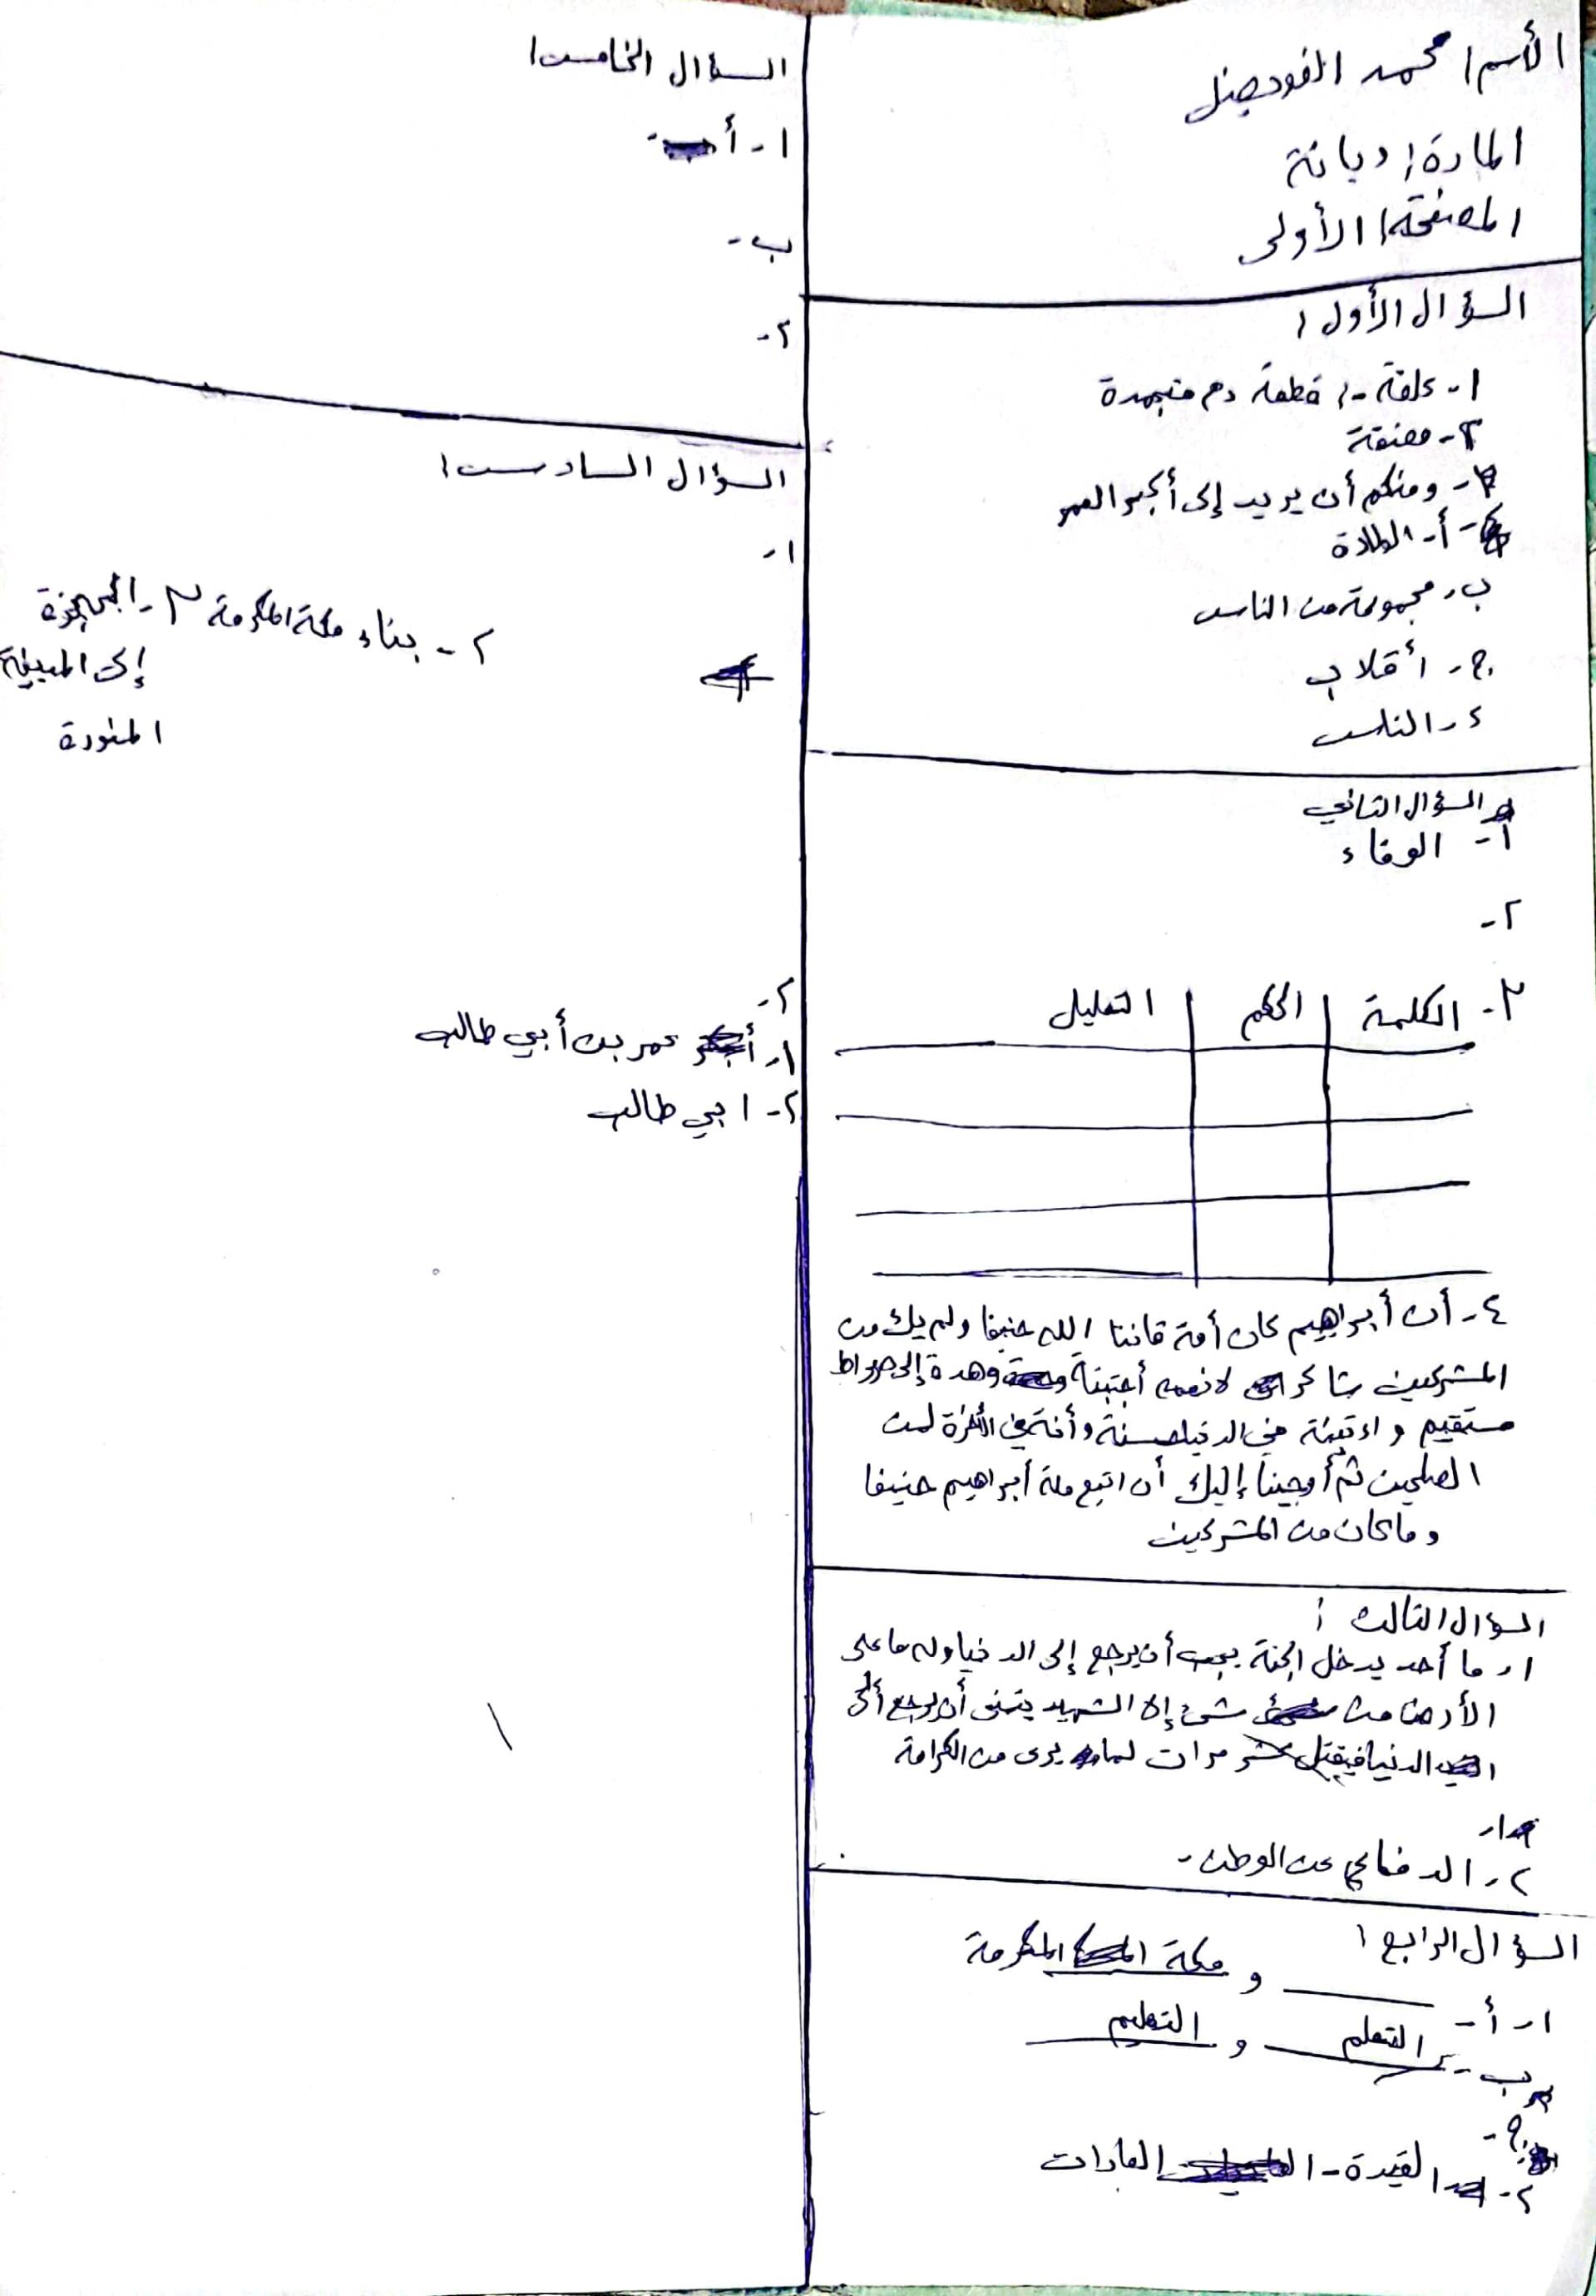 الأسم/ محمد الفوديصل
المادة: ديانة
الصفحة/ الأولى
السؤال الأول:
١- علقة -: قطعة دم متجمدة
٢- مضغة
٣- ومنكم أن يريد إلى أكبر العمر
٤- أ- الولادة
ب- مجموعة من الناس
ج- أقلاب
د- الناس
السؤال الثاني
١- الوفاء
٢-
٣- الكلمة | الحكم | التعليل
٤- أن أبراهيم كان أمة قانتا الله حنيفا ولم يك من
المشركين شاكرا لانعمه أجتبنة وهدة إلى صراط
مستقيم واءتينة في الدنيا حسنة وأنة في الأخرة لمن
الصلحين ثم أوحينا إليك أن اتبع ملة أبراهيم حنيفا
وما كان من المشركين
السؤال الثالث:
١- ما أحد يدخل الجنة يحب أن يرجع إلى الدنيا وله ما على
الأرض من شئ إلا الشهيد يتمنى أن يرجع ألى
الدنيا فيقتل عشر مرات لما يرى من الكرامة
٢- الدفاع عن الوطن-
السؤال الرابع:
١- أ- ــــ و مكة المكرمة
ب- التعلم و التعليم
ج-
٢- القيدة - العادات
السؤال الخامس:
١- أ-
ب-
٢-
السؤال السادس:
١-
٢- بناء مكة المكرمة ٣- الهجرة
إلى المدينة
المنورة
٢-
١- عمر بن أبي طالب
٢- ابي طالب